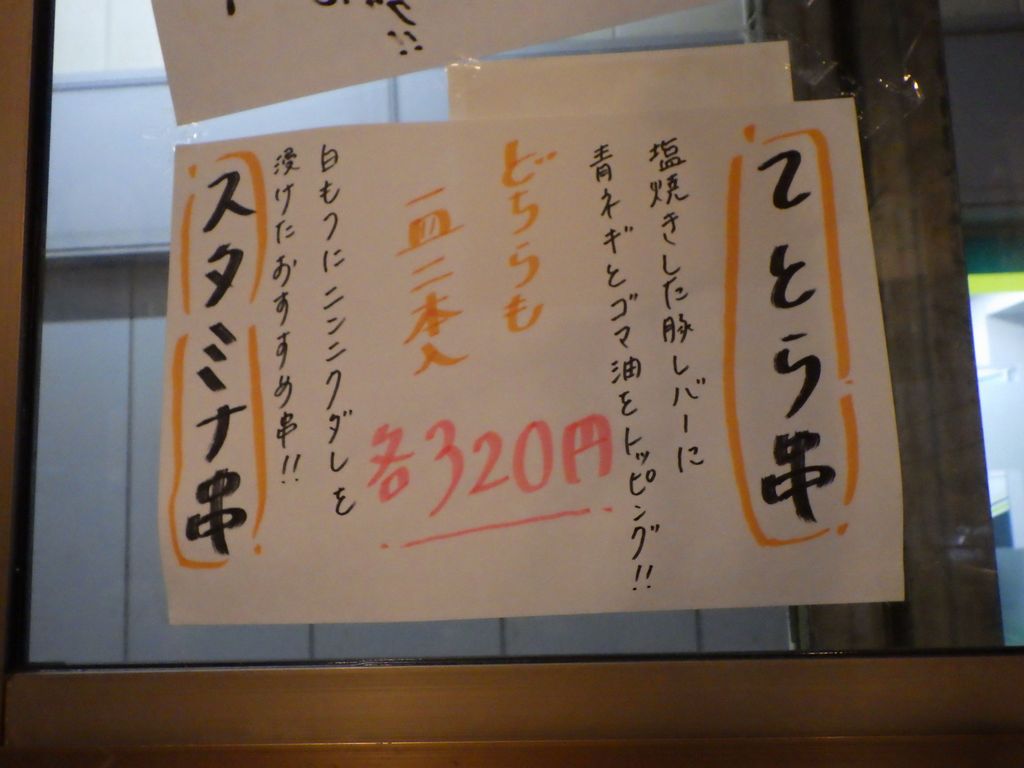 てとら串
塩焼きした豚レバーに
青ネギとゴマ油をトッピング!!
どちらも
一皿二本入
各320円
白もつにニンニクダレを
浸けたおすすめ串!!
スタミナ串